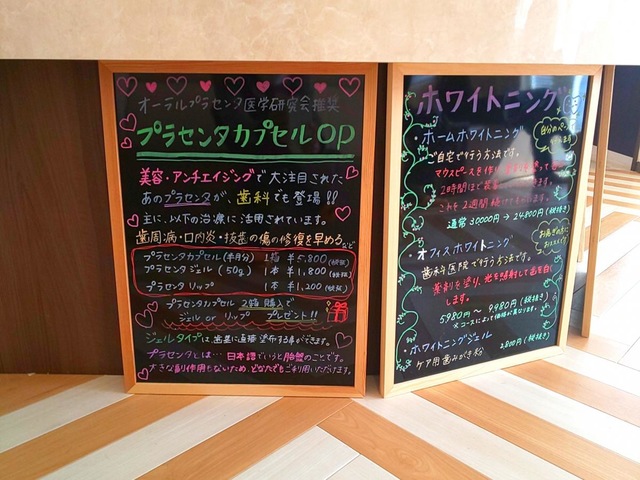 オーラルプラセンタ医学研究会推奨
プラセンタカプセルOP
美容・アンチエイジングで大注目された
あのプラセンタが、歯科でも登場!!
主に、以下の治療に活用されています。
歯周病・口内炎・抜歯の傷の修復を早めるなど
プラセンタカプセル(半月分) 1箱 ¥5,800(税抜)
プラセンタジェル(50g) 1本 ¥1,800(税抜)
プラセンタリップ 1本 ¥1,200(税抜)
プラセンタカプセル 2箱購入で
ジェル or リップ プレゼント!!
ジェルタイプは、歯茎に直接塗布する事ができます。
プラセンタとは… 日本語でいうと胎盤のことです。
大きな副作用もないため、どなたでもご利用いただけます。
ホワイトニング
・ホームホワイトニング
自分のペースで
ご自宅で行う方法です。
マウスピースを作り
2時間ほど
これを2週間続け
通常 30000円→24,800円(税抜き)
お急ぎの方に
おススメ
・オフィスホワイトニング
歯科医院で行う方法です。
薬剤を塗り、光を照射して歯を白く
します。
5980円～9980円(税抜き)
※コースによって価格が異なります。
・ホワイトニングジェル
ケア用歯みがき粉 2,800円(税抜き)